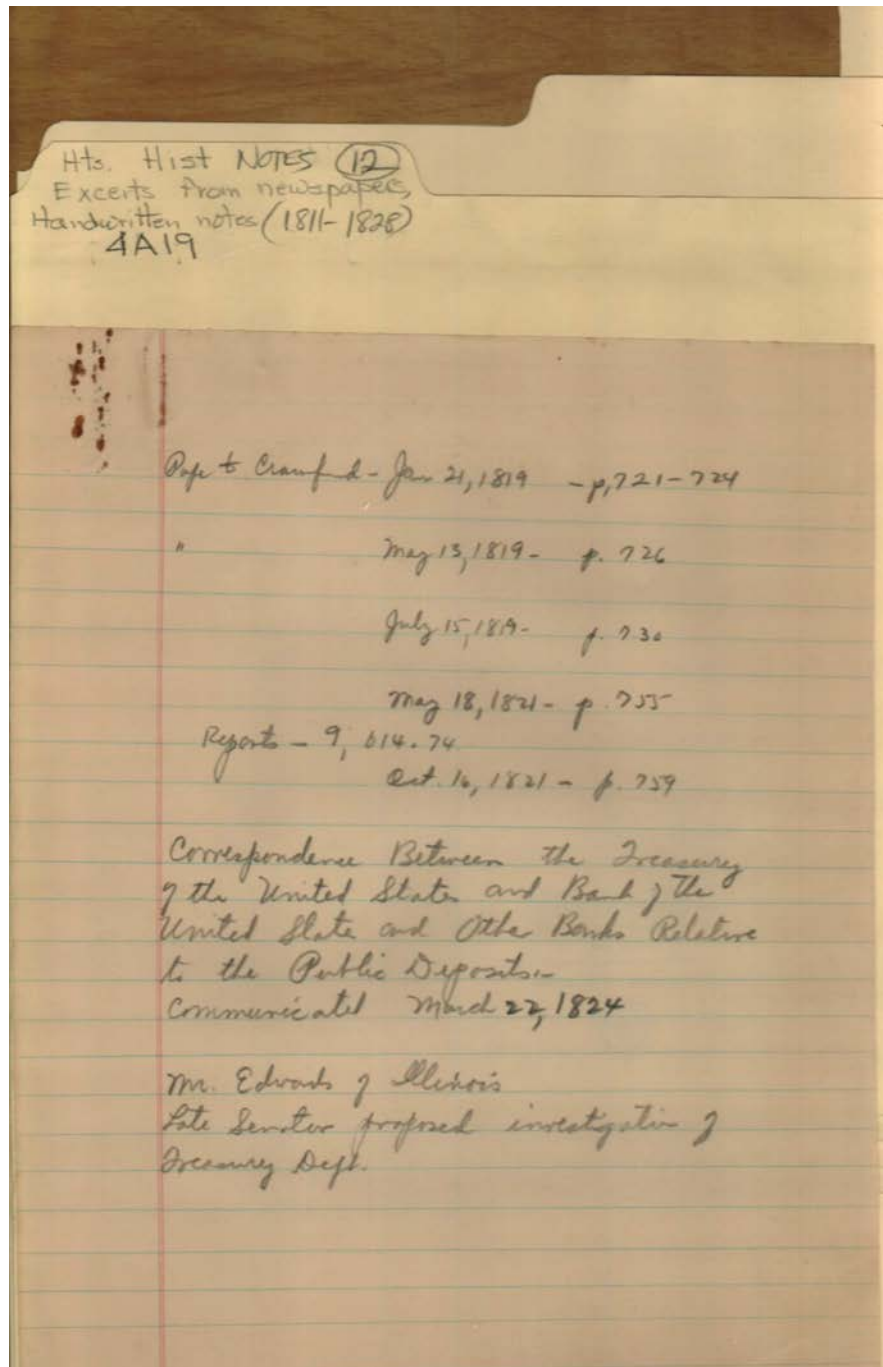 Hts. Hist NOTES (12)
Excerts from newspapers,
Handwritten notes (1811-1828)
4A19
Pope to Crawford - Jan 21, 1819 - p, 721-724
" May 13, 1819 - p. 726
July 15, 1819 - p. 730
May 18, 1821 - p. 755
Reports - 9, 614.74
Oct. 16, 1821 - p. 759
Correspondence Between the Treasury
of the United States and Bank of the
United State and Other Banks Relative
to the Public Deposits.-
Communicated March 22, 1824
Mr. Edwards of Illinois
Late Senator proposed investigation of
Treasury Dept.